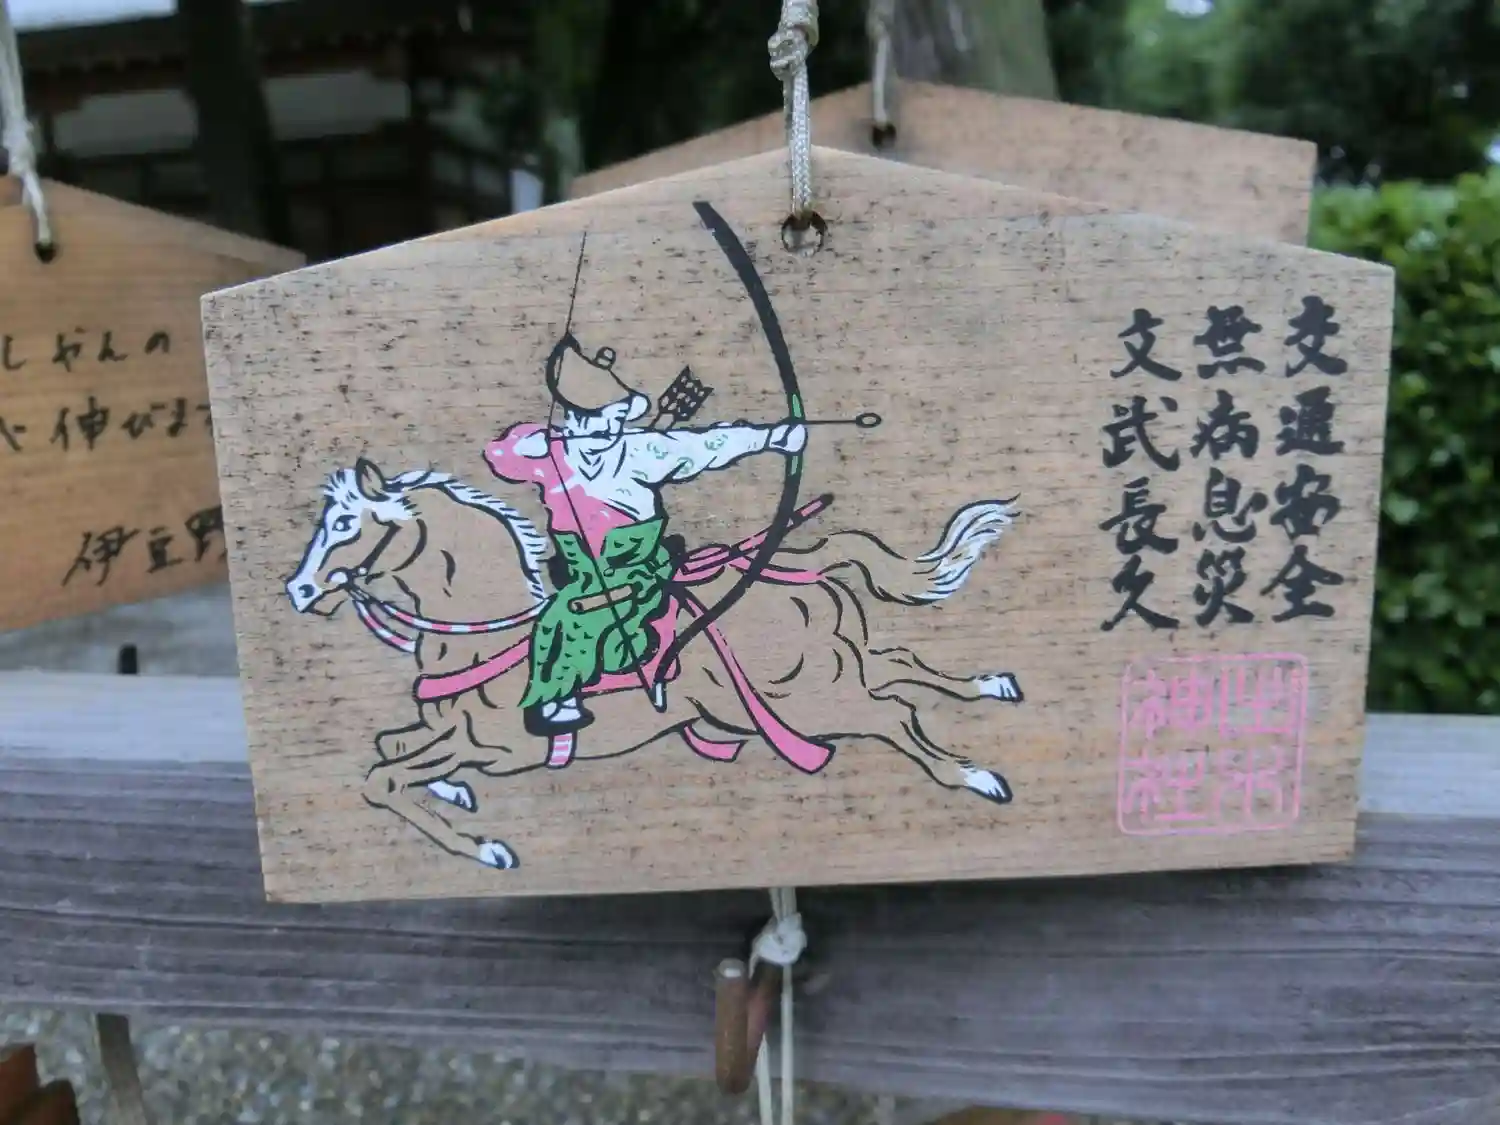 交通安全
無病息災
文武長久
出水
神社
しゃんの
伸びま
伊豆野